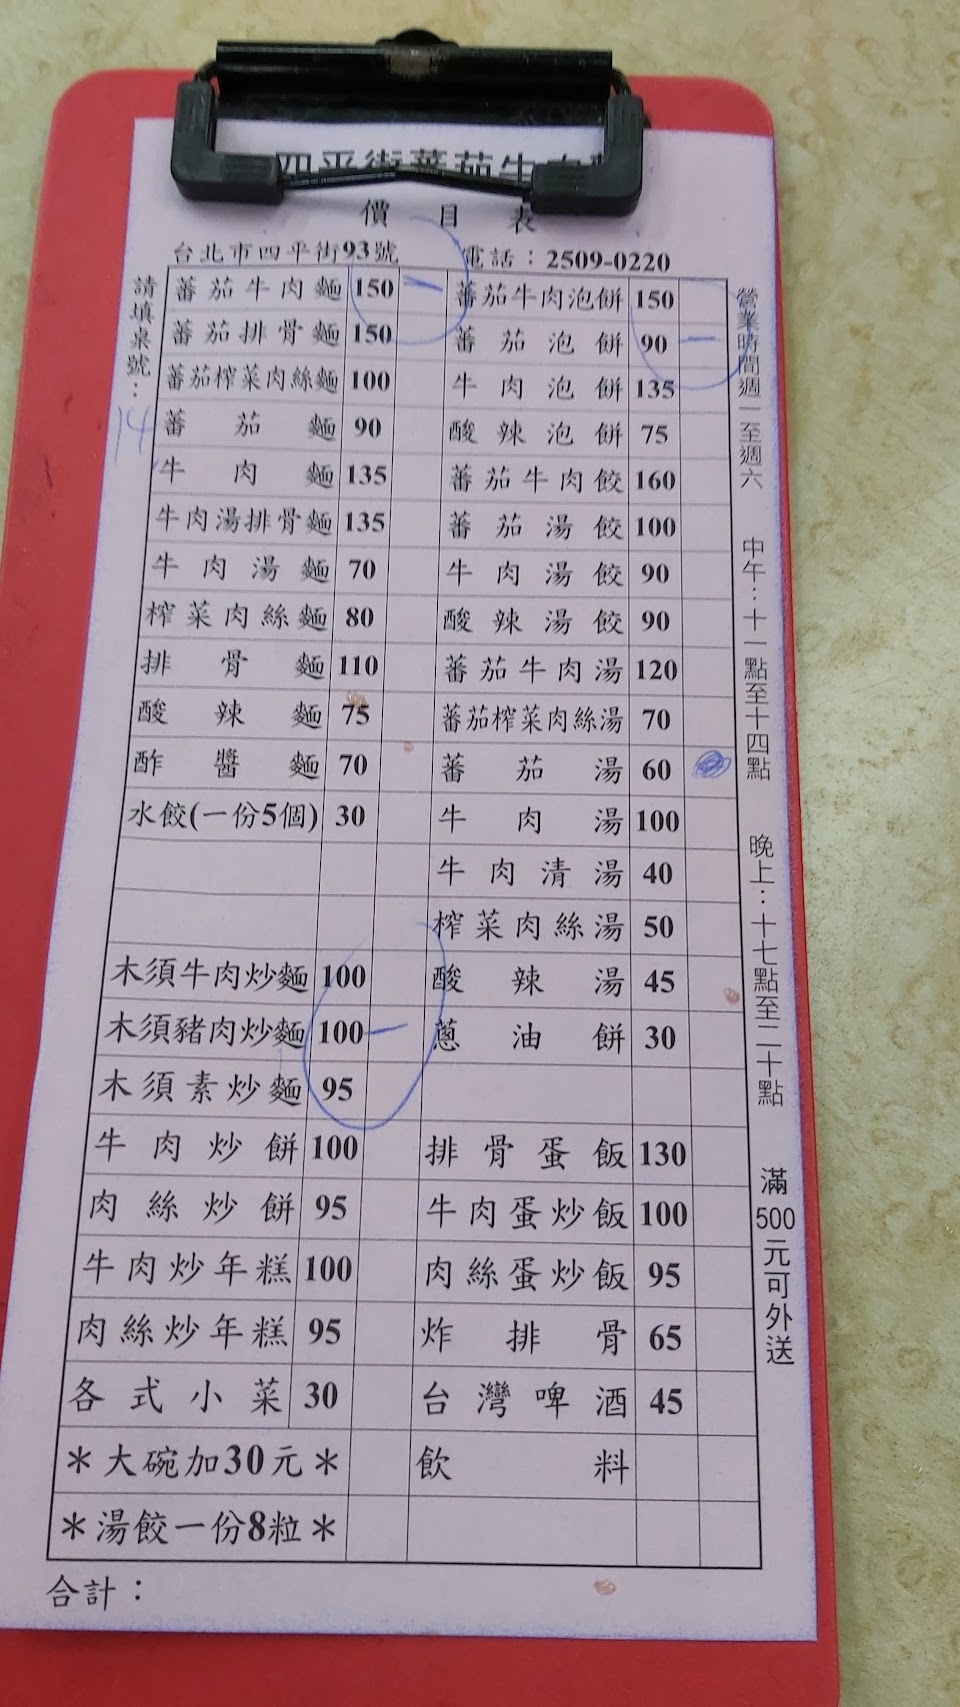 四平街蕃茄牛肉麵
價目表
台北市四平街93號 電話：2509-0220
請填桌號：14
蕃茄牛肉麵 150 一 蕃茄牛肉泡餅 150
蕃茄排骨麵 150 蕃茄泡餅 90 一
蕃茄榨菜肉絲麵 100 牛肉泡餅 135
蕃茄麵 90 酸辣泡餅 75
牛肉麵 135 蕃茄牛肉餃 160
牛肉湯排骨麵 135 蕃茄湯餃 100
牛肉湯麵 70 牛肉湯餃 90
榨菜肉絲麵 80 酸辣湯餃 90
排骨麵 110 蕃茄牛肉湯 120
酸辣麵 75 蕃茄榨菜肉絲湯 70
酢醬麵 70 蕃茄湯 60
水餃(一份5個) 30 牛肉湯 100
牛肉清湯 40
榨菜肉絲湯 50
木須牛肉炒麵 100 酸辣湯 45
木須豬肉炒麵 100 一 蔥油餅 30
木須素炒麵 95
牛肉炒餅 100 排骨蛋飯 130
肉絲炒餅 95 牛肉蛋炒飯 100
牛肉炒年糕 100 肉絲蛋炒飯 95
肉絲炒年糕 95 炸排骨 65
各式小菜 30 台灣啤酒 45
＊大碗加30元＊ 飲料
＊湯餃一份8粒＊
合計：
營業時間週一至週六 中午：十一點至十四點 晚上：十七點至二十點 滿500元可外送